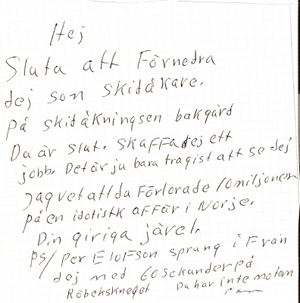 Hej
Sluta att Förnedra
dej som skidåkare.
På skidåkningsen bakgård
Da är slut. Skaffa dej ett
jobb. Det är ju bara tragist att se dej
Jag vet att da förlorade 10 miljoner
på en idotistk affär i Norje.
Din giriga jävel.
PS/ Per Elofson sprang i Från
dej med 60 sekunder på
Röbäcksknoget Da har inte motan